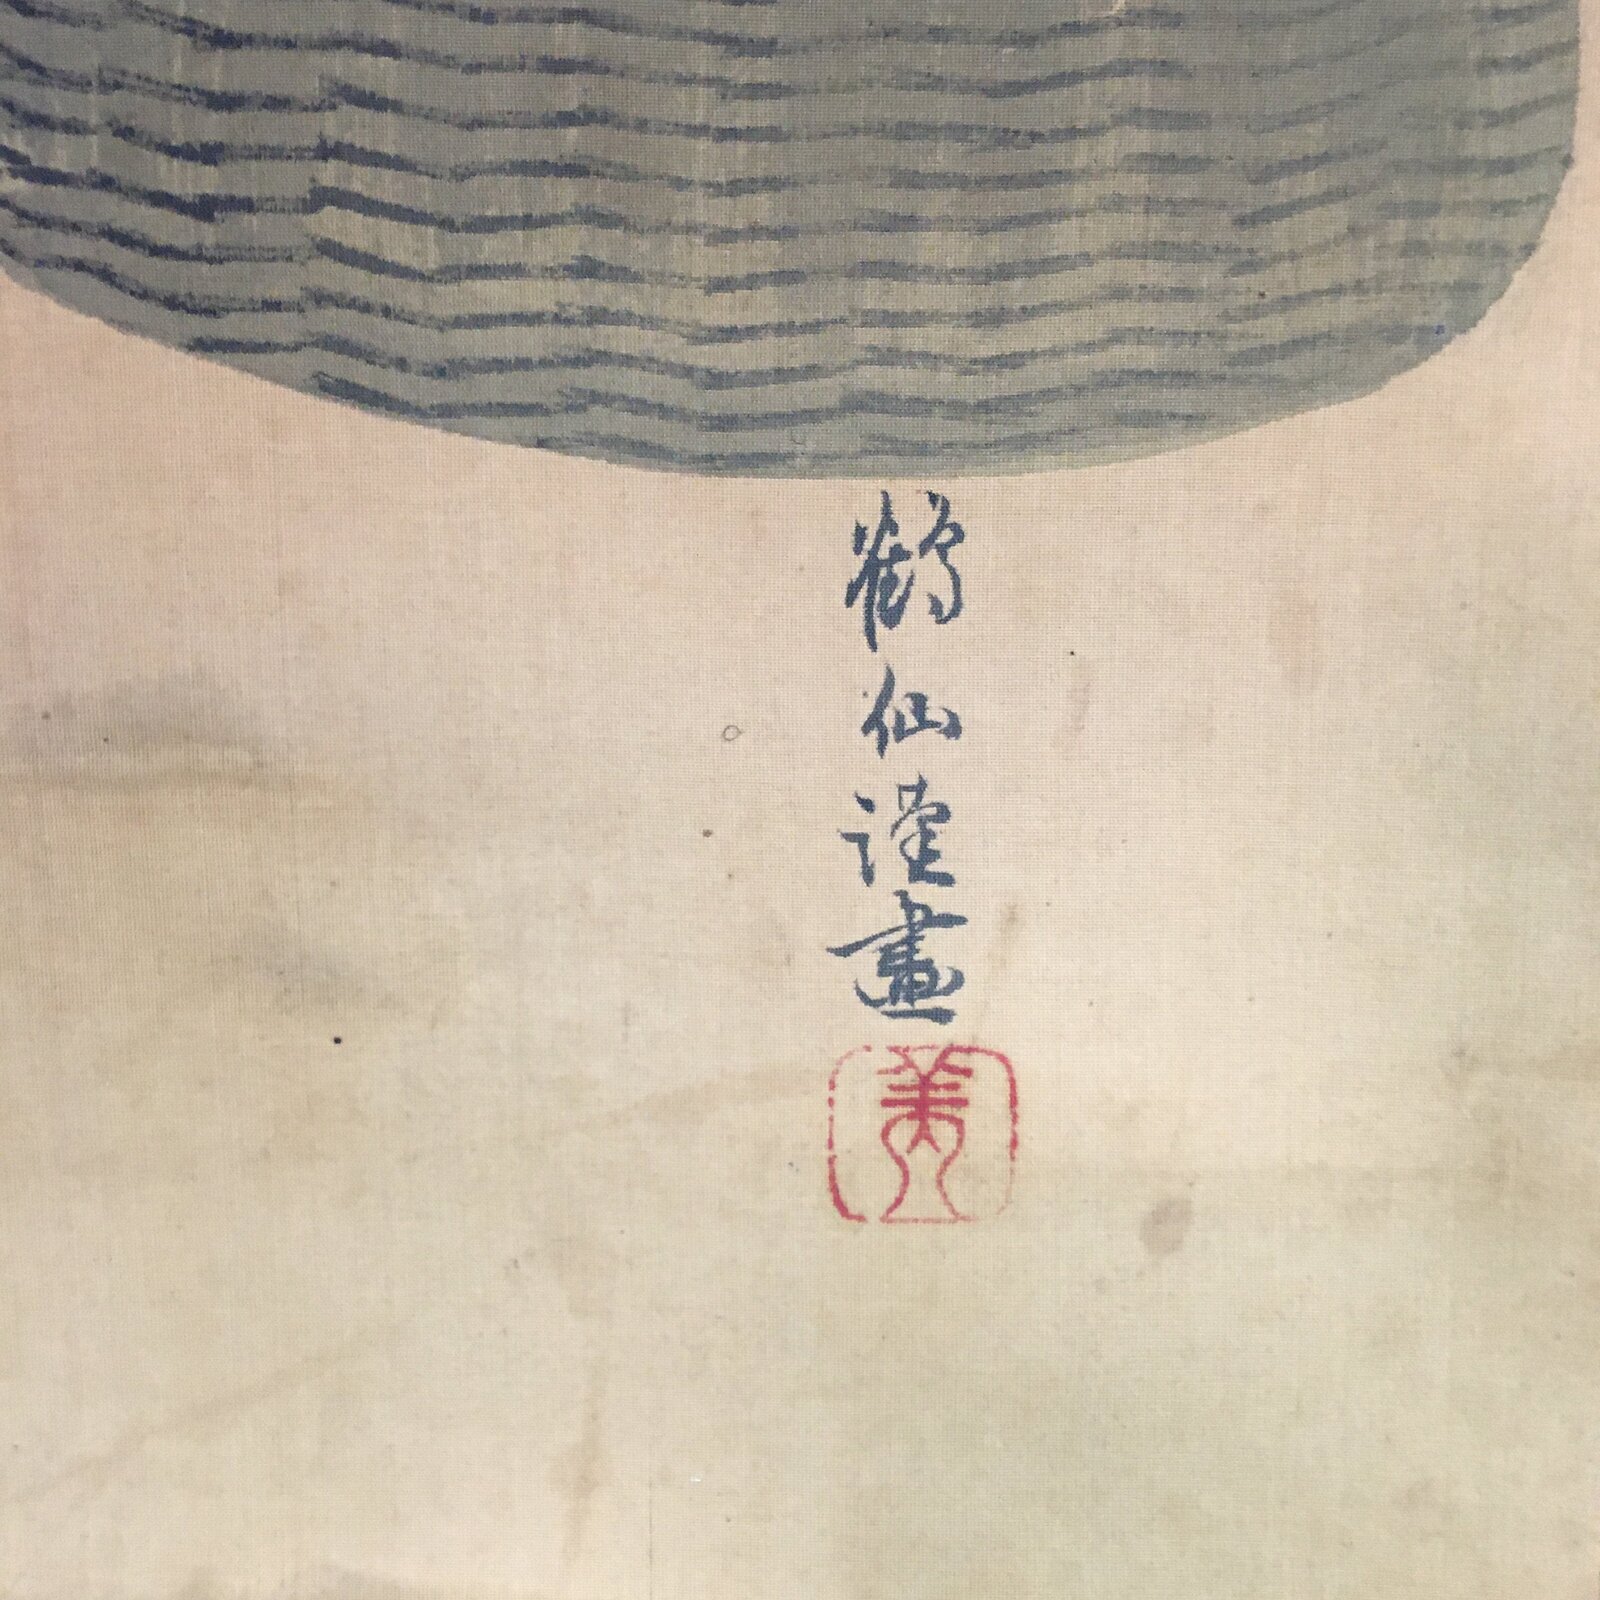 鶴仙謹畫
美